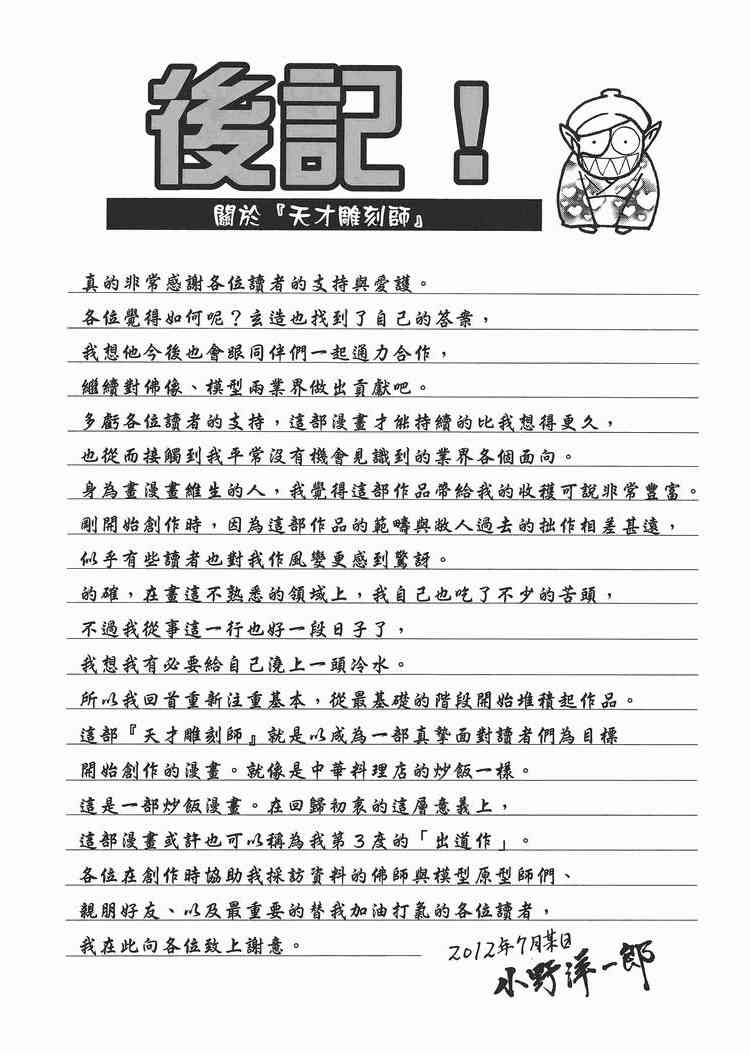 後記！
關於『天才雕刻師』
真的非常感謝各位讀者的支持與愛護。
各位覺得如何呢？玄造也找到了自己的答案，
我想他今後也會跟同伴們一起通力合作，
繼續對佛像、模型兩業界做出貢獻吧。
多虧各位讀者的支持，這部漫畫才能持續的比我想得更久，
也從而接觸到我平常沒有機會見識到的業界各個面向。
身為畫漫畫維生的人，我覺得這部作品帶給我的收穫可說非常豐富。
剛開始創作時，因為這部作品的範疇與敝人過去的拙作相差甚遠，
似乎有些讀者也對我作風變更感到驚訝。
的確，在畫這不熟悉的領域上，我自己也吃了不少的苦頭，
不過我從事這一行也好一段日子了，
我想我有必要給自己澆上一頭冷水。
所以我回首重新注重基本，從最基礎的階段開始堆積起作品。
這部『天才雕刻師』就是以成為一部真摯面對讀者們為目標
開始創作的漫畫。就像是中華料理店的炒飯一樣。
這是一部炒飯漫畫。在回歸初衷的這層意義上，
這部漫畫或許也可以稱為我第3度的「出道作」。
各位在創作時協助我採訪資料的佛師與模型原型師們、
親朋好友、以及最重要的替我加油打氣的各位讀者，
我在此向各位致上謝意。
2012年7月某日
小野洋一郎